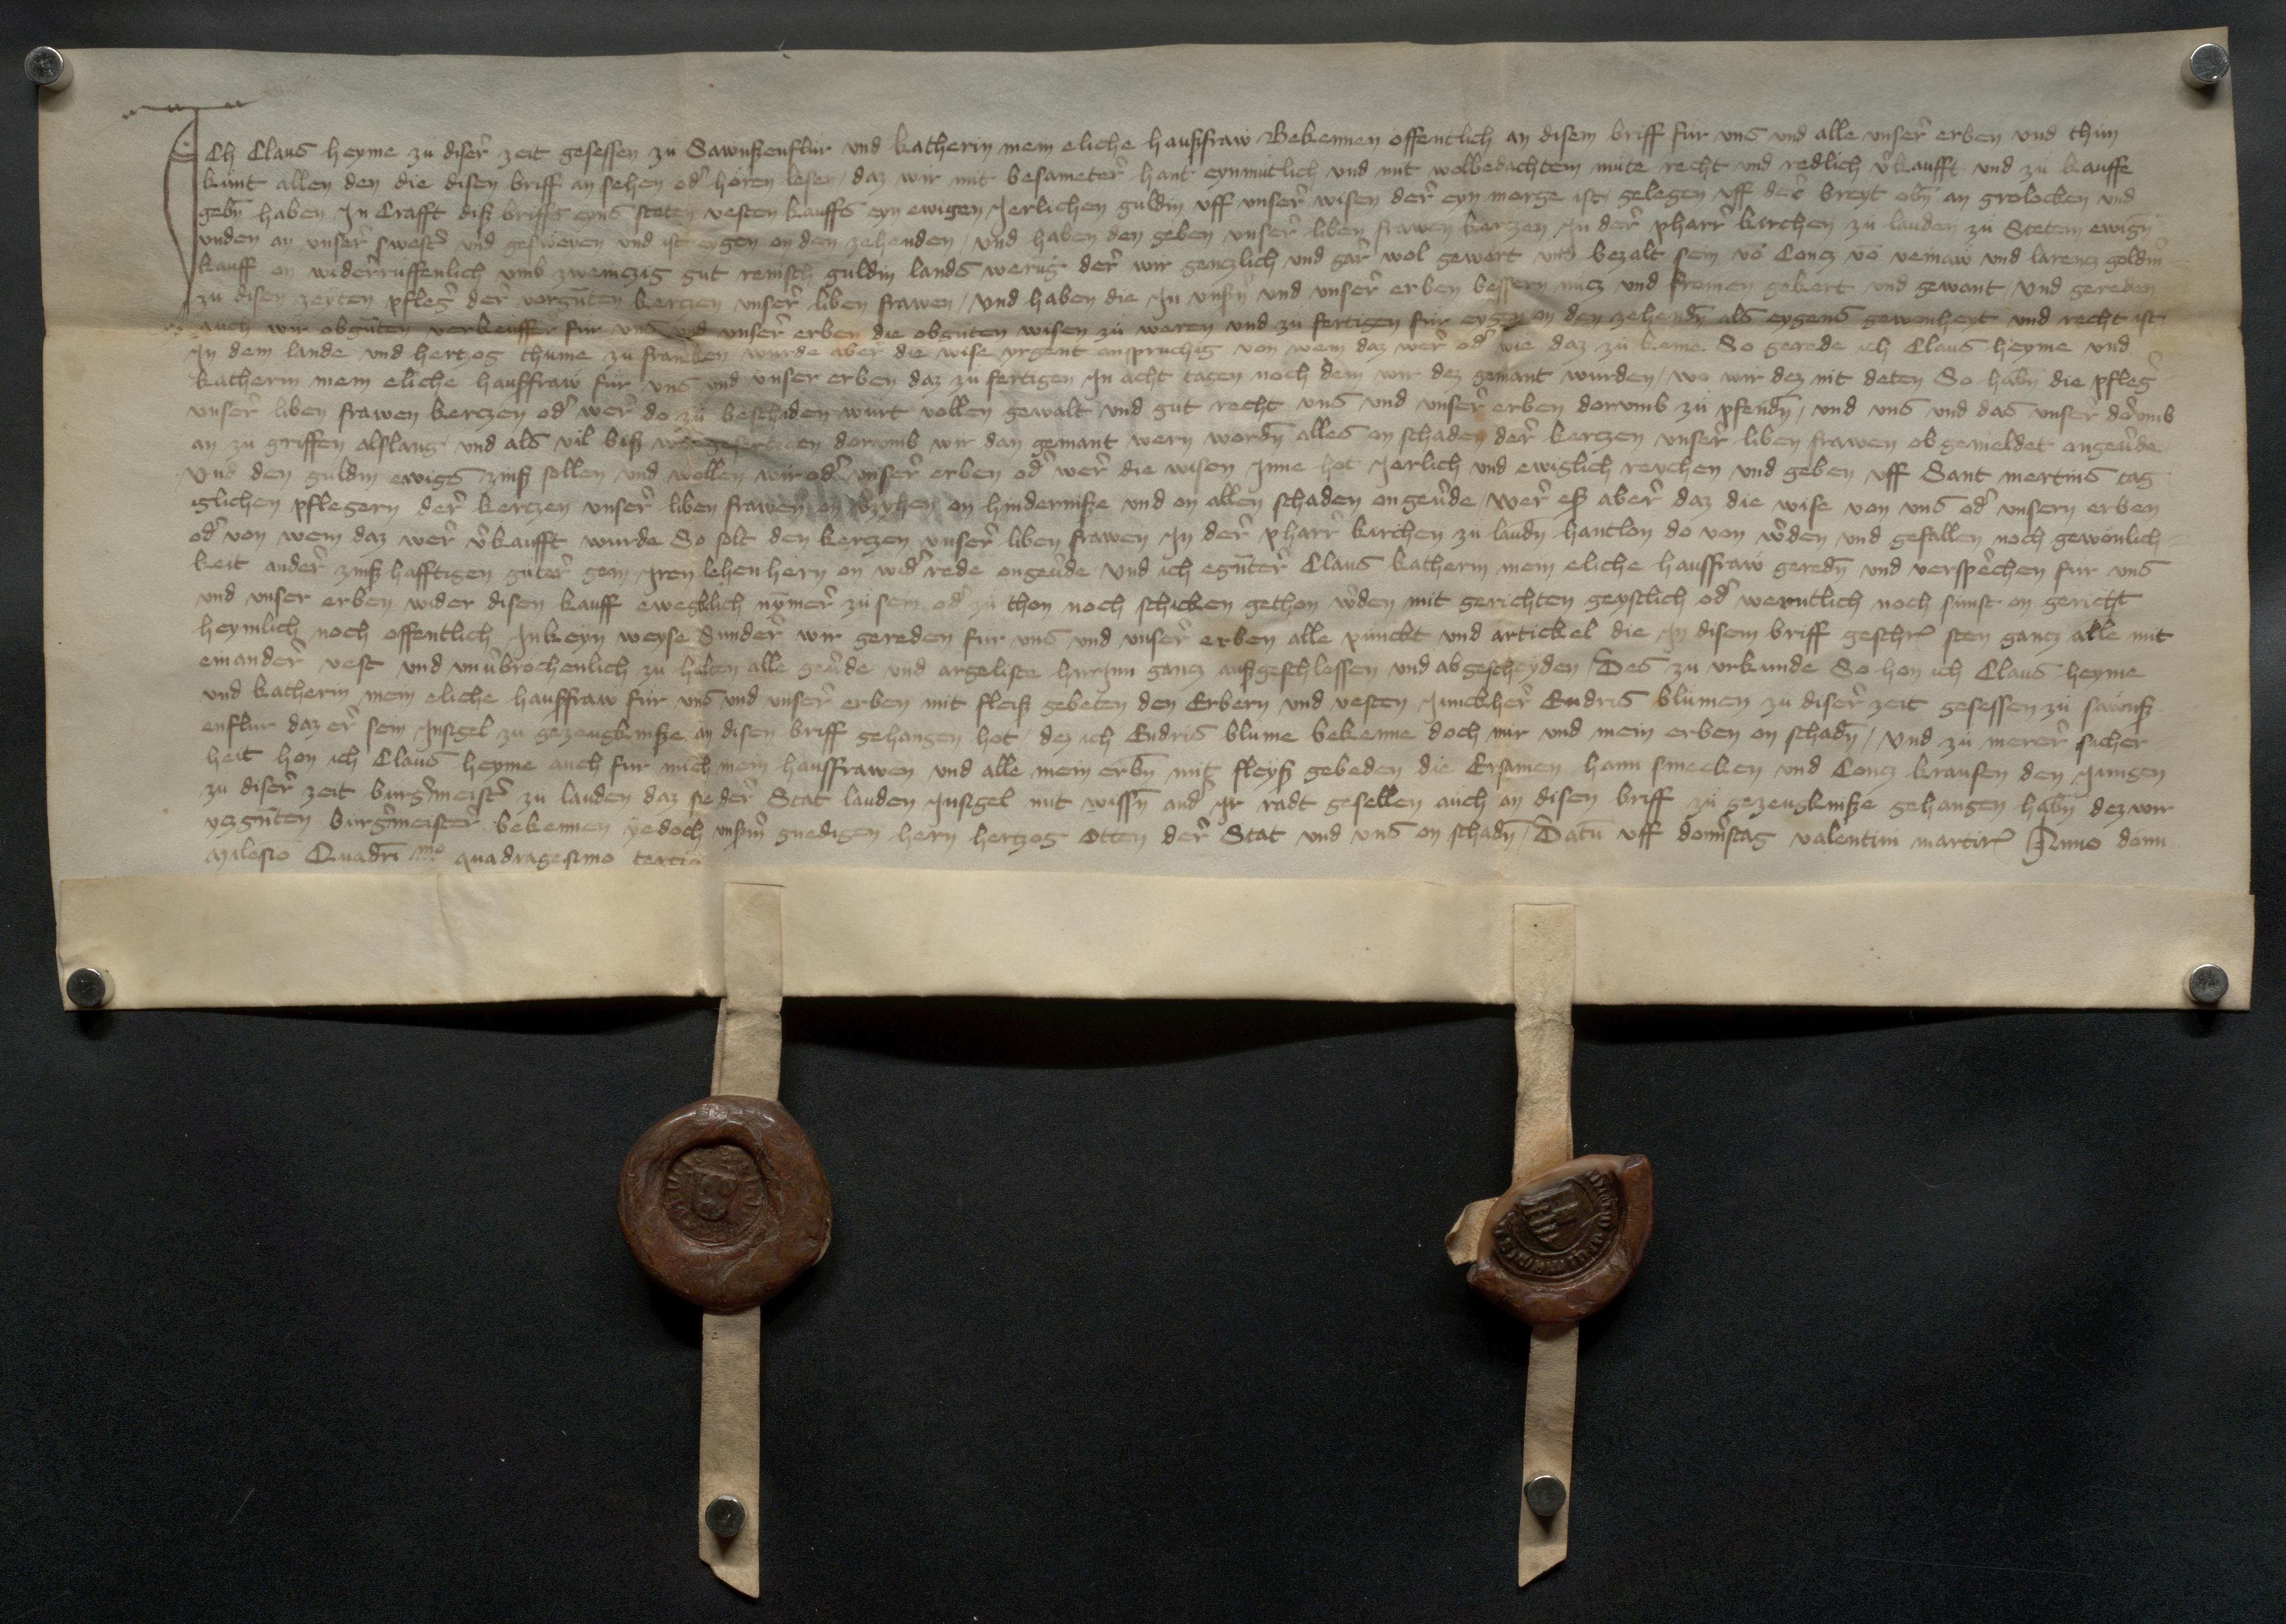 Ich Claus heyme zu diser zeit gesessen zu Sawnszenflur und katherin mein eliche hauszfraw Bekennen offentlich an disem briff fur uns und alle unser erben und thun
kunt allen den die disen briff an sehen od' horen lesen / daz wir mit besameter hant eynmutlich und mit wolbedachtem mute recht und redlich v'kaufft und zu kauffe
gebn haben In Crafft disz briffs eyns steten vesten kauffs eyn ewigen Jerlichen guldin uff unser wisen der eyn morge ist gelegen uff der breyt obn an grolocken und
unden an unser swest' und gesweven und ist eygen on den zehenden / und haben den geben unser liben frawen kerczen In der pharr kirchen zu lauden zu Stetem ewign
kauff on widerruffenlich umb zweinczig gut reinisch guldin lands werug der wir genczlich und gar wol gewert und bezalt sein vo Concz vo veinaw und larencz goldin
zu disen zeyten pfleg' der vorgnten kerczen unser liben frawen / und haben die In unsern und unser erben bessern nucz und fromen gekert und gewant / und gereden
auch wir obgnten verkeuffer fur uns und unser erben die obgnten wisen zu weren und zu fertigen fur eygen on den zehendn als eygens gewonheyt und recht ist
In dem lande und hertzog thume zu francken wurde aber die wise yrgent anspruchig von wem daz wer od' wie daz zu keme So gerede ich Claus heyme und
katherin mein eliche hauffraw fur uns und unser erben daz zu fertigen In acht tagen noch dem wir dez gemant wurden / wo wir dez nit deten So habn die pfleg'
unser liben frawen kerczen od' wer do zu bescheiden wurt vollen gewalt und gut recht uns und unser erben dorumb zu pfendn / und uns und das unser dorumb
an zu griffen alslang und als vil bisz dorumb wir dan gemant wern wordn alles on schaden der kerczen unser liben frawen ob gemeldet ongeu'de
Und den guldin ewigs zinsz sollen und wollen wir od' unser erben od' wer die wisen Inne hot Jerlich und ewiglich reychen und geben uff Sant mertins tag
iglichen pflegern der kerczen unser liben frawen on v'zyhen on hindernisze und on allen schaden ongeu'de / wer esz aber daz die wise von uns od' unsern erben
od' von wem daz wer v'kaufft wurde So solt den kerczen unser liben frawen In der pharr kirchen zu laudn hantlon do von w'den und gefallen noch gewonlich
keit ander zinszhafftigen guter gein Iren lehenhern on wid' rede ongeu'de und ich egnter Claus katherin mein eliche hauffraw geredn und versprechen fur uns
und unser erben wider disen kauff ewegklich nymer zu sein od' zu thon noch schicken gethon w'den mit gerichten geystlich od' werntlich noch sunst on gericht
heymlich noch offentlich Inkeyn weyse Sunder wir gereden fur uns und unser erben alle punckt und artickel die In disem briff geschr' sten gancz alle mit
einander vest und unu'brochenlich zu halten alle geu'de und argeliste hirInn gancz auszgeschlossen und abgescheyden / Des zu urkunde So hon ich Claus heyme
und katherin mein eliche hauffraw fur uns und unser erben mit fleisz gebeten den Erbern und vesten Junckher Endris blumen zu diser zeit gesessen zu sawnsz
enflur daz er sein Insigel zu gezeugknisze an disen briff gehangen hot / dez ich Endris blume bekenne doch mir und mein erben on schadn / Und zu merer sicher
heit hon ich Claus heyme auch fur mich mein hauffrawen und alle mein erbn mit fleysz gebeden die Ersamen hann smecken und Concz krausen den Jungen
zu diser zeit burg'meist' zu lauden daz sie der Stat lauden Insigel mit wissn and' Ir radt gesellen auch an disen briff zu gezeugknisze gehangen habn dez wir
yczgnten burg'meister bekennen yedoch unserm gnedigen hern hertzog Otten der Stat und uns on schadn / Datu uff dornstag valentini martir' Anno domi
Milesio Quadri mo quadragesimo tercio